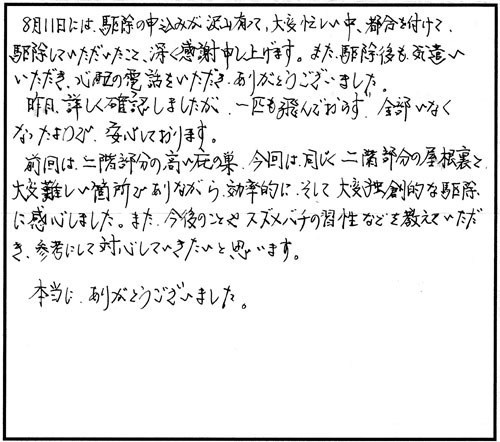 8月11日には、駆除の申込みが沢山有って、大変忙しい中、都合を付けて、
駆除していただいたこと、深く感謝申し上げます。また、駆除後も、気遣い
いただき、心配の電話をいただき、ありがとうございました。
昨日、詳しく確認しましたが、一匹も飛んでおらず、全部いなく
なったようで、安心しております。
前回は、二階部分の高い庇の巣、今回は、同じく二階部分の屋根裏と
大変難しい箇所でありながら、効率的に、そして大変独創的な駆除
に感心しました。また、今後のことやスズメバチの習性などを教えていただ
き、参考にして対応していきたいと思います。
本当に、ありがとうございました。